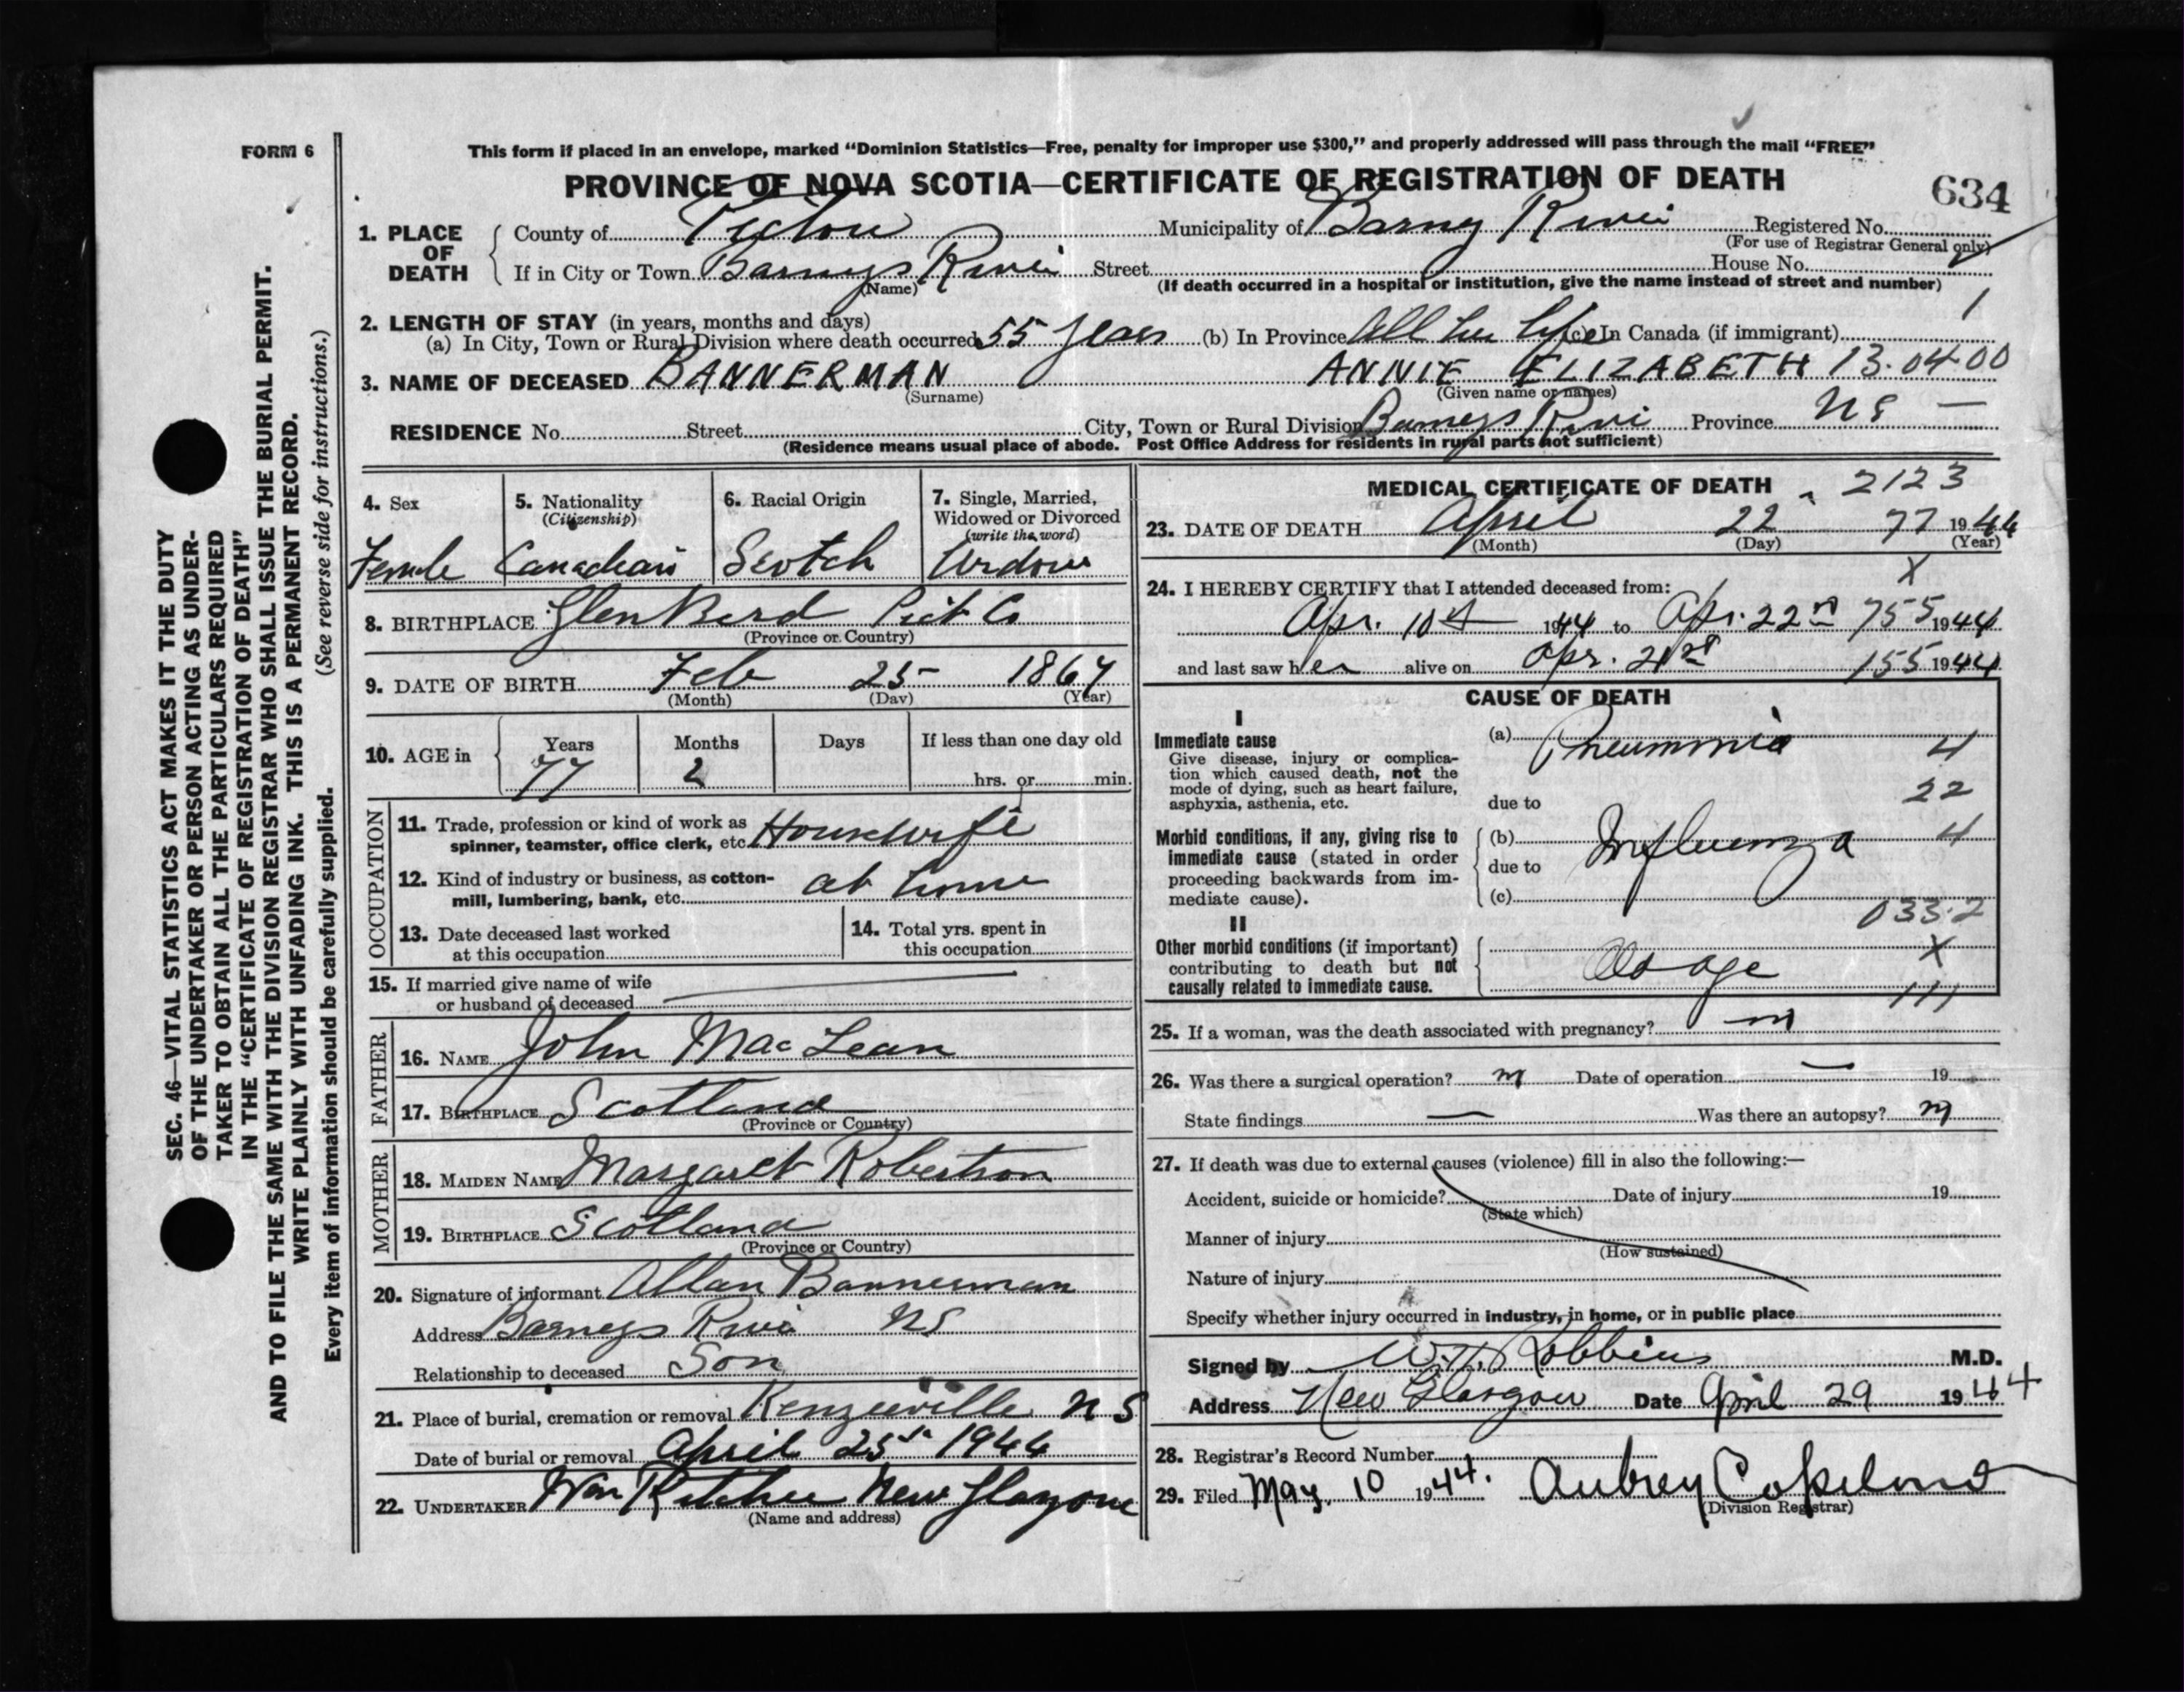 FORM 6
This form if placed in an envelope, marked "Dominion Statistics—Free, penalty for improper use $300," and properly addressed will pass through the mail "FREE"
PROVINCE OF NOVA SCOTIA—CERTIFICATE OF REGISTRATION OF DEATH
634
1. PLACE OF DEATH
County of Pictou Municipality of Barny River Registered No.
(For use of Registrar General only)
If in City or Town Barneys River Street House No.
(Name) (If death occurred in a hospital or institution, give the name instead of street and number)
1
2. LENGTH OF STAY (in years, months and days)
(a) In City, Town or Rural Division where death occurred 55 years (b) In Province All her life (c) In Canada (if immigrant)
3. NAME OF DECEASED BANNERMAN ANNIE ELIZABETH 13.04.00
(Surname) (Given name or names)
RESIDENCE No. Street City, Town or Rural Division Barneys River Province NS —
(Residence means usual place of abode. Post Office Address for residents in rural parts not sufficient)
4. Sex
Female
5. Nationality
(Citizenship)
Canadian
6. Racial Origin
Scotch
7. Single, Married, Widowed or Divorced
(write the word)
Widow
8. BIRTHPLACE Glen Bard Pict Co
(Province or Country)
9. DATE OF BIRTH Feb 25 1867
(Month) (Day) (Year)
10. AGE in
Years Months Days If less than one day old
77 2 hrs. or min.
OCCUPATION
11. Trade, profession or kind of work as
spinner, teamster, office clerk, etc. Housewife
12. Kind of industry or business, as cotton-
mill, lumbering, bank, etc. at home
13. Date deceased last worked
at this occupation
14. Total yrs. spent in
this occupation
15. If married give name of wife
or husband of deceased —
FATHER
16. NAME John MacLean
17. BIRTHPLACE Scotland
(Province or Country)
MOTHER
18. MAIDEN NAME Margaret Robertson
19. BIRTHPLACE Scotland
(Province or Country)
20. Signature of informant Allan Bannerman
Address Barneys River NS
Relationship to deceased Son
21. Place of burial, cremation or removal Kenzieville NS
Date of burial or removal April 25 1944
22. UNDERTAKER Wm Ritchie New Glasgow
(Name and address)
MEDICAL CERTIFICATE OF DEATH 2123
23. DATE OF DEATH April 22 77 1944
(Month) (Day) (Year)
X
24. I HEREBY CERTIFY that I attended deceased from:
Apr. 10th 1944 to Apr. 22nd 755 1944
and last saw her alive on Apr. 21st 155 1944
CAUSE OF DEATH
I
Immediate cause
Give disease, injury or complica-
tion which caused death, not the
mode of dying, such as heart failure,
asphyxia, asthenia, etc.
(a) Pneumonia 4
due to 22
Morbid conditions, if any, giving rise to
immediate cause (stated in order
proceeding backwards from im-
mediate cause).
(b) Influenza 4
due to
(c)
033.2
II
Other morbid conditions (if important)
contributing to death but not
causally related to immediate cause.
Old age X
111
25. If a woman, was the death associated with pregnancy? no
26. Was there a surgical operation? no Date of operation — 19
State findings — Was there an autopsy? no
27. If death was due to external causes (violence) fill in also the following:—
Accident, suicide or homicide? Date of injury 19
(State which)
Manner of injury
(How sustained)
Nature of injury
Specify whether injury occurred in industry, in home, or in public place
Signed by W.H. Robbins M.D.
Address New Glasgow Date April 29 1944
28. Registrar's Record Number
29. Filed May 10 1944. Aubrey Copeland
(Division Registrar)
SEC. 46—VITAL STATISTICS ACT MAKES IT THE DUTY
OF THE UNDERTAKER OR PERSON ACTING AS UNDER-
TAKER TO OBTAIN ALL THE PARTICULARS REQUIRED
IN THE "CERTIFICATE OF REGISTRATION OF DEATH"
AND TO FILE THE SAME WITH THE DIVISION REGISTRAR WHO SHALL ISSUE THE BURIAL PERMIT.
WRITE PLAINLY WITH UNFADING INK. THIS IS A PERMANENT RECORD.
Every item of information should be carefully supplied. (See reverse side for instructions.)